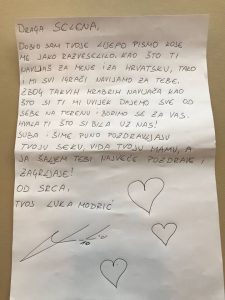 DRAGA SELENA,
DOBIO SAM TVOJE LIJEPO PISMO KOJE
ME JAKO RAZVESELILO. KAO ŠTO TI
NAVIJAŠ ZA MENE I ZA HRVATSKU, TAKO
I MI SVI IGRAČI NAVIJAMO ZA TEBE.
ZBOG TAKVIH HRABRIH NAVIJAČA KAO
ŠTO SI TI MI UVIJEK DAJEMO SVE OD
SEBE NA TERENU I BORIMO SE ZA VAS.
HVALA TI ŠTO SI BILA UZ NAS!
SUBA I ŠIME PUNO POZDRAVLJAJU
TVOJU SEKU, VIDA TVOJU MAMU, A
JA ŠALJEM TEBI NAJVEĆE POZDRAVE I
ZAGRLJAJE!
OD SRCA,
TVOJ LUKA MODRIĆ
10